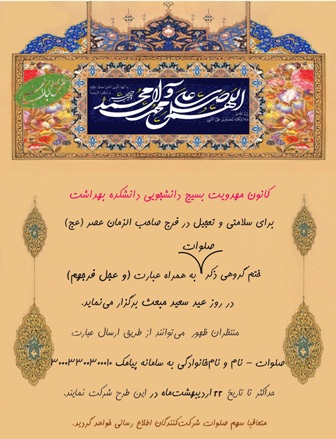 اللهم صل علی محمد و آل محمد
کانون مهدویت بسیج دانشجویی دانشکده بهداشت
برای سلامتی و تعجیل در فرج صاحب الزمان عصر (عج)
صلوات
ختم گروهی ذکر به همراه عبارت (و عجل فرجهم)
در روز عید سعید مبعث برگزار می‌نماید.
منتظران ظهور می‌توانند از طریق ارسال عبارت
صلوات - نام و نام‌خانوادگی به سامانه پیامک ۳۰۰۰۳۳۰۰۳۰۰۰۱۰
حداکثر تا تاریخ ۲۲ اردیبهشت‌ماه در این طرح شرکت نمایند.
متعاقبا سهم صلوات شرکت‌کنندگان اطلاع رسانی خواهد گردید.